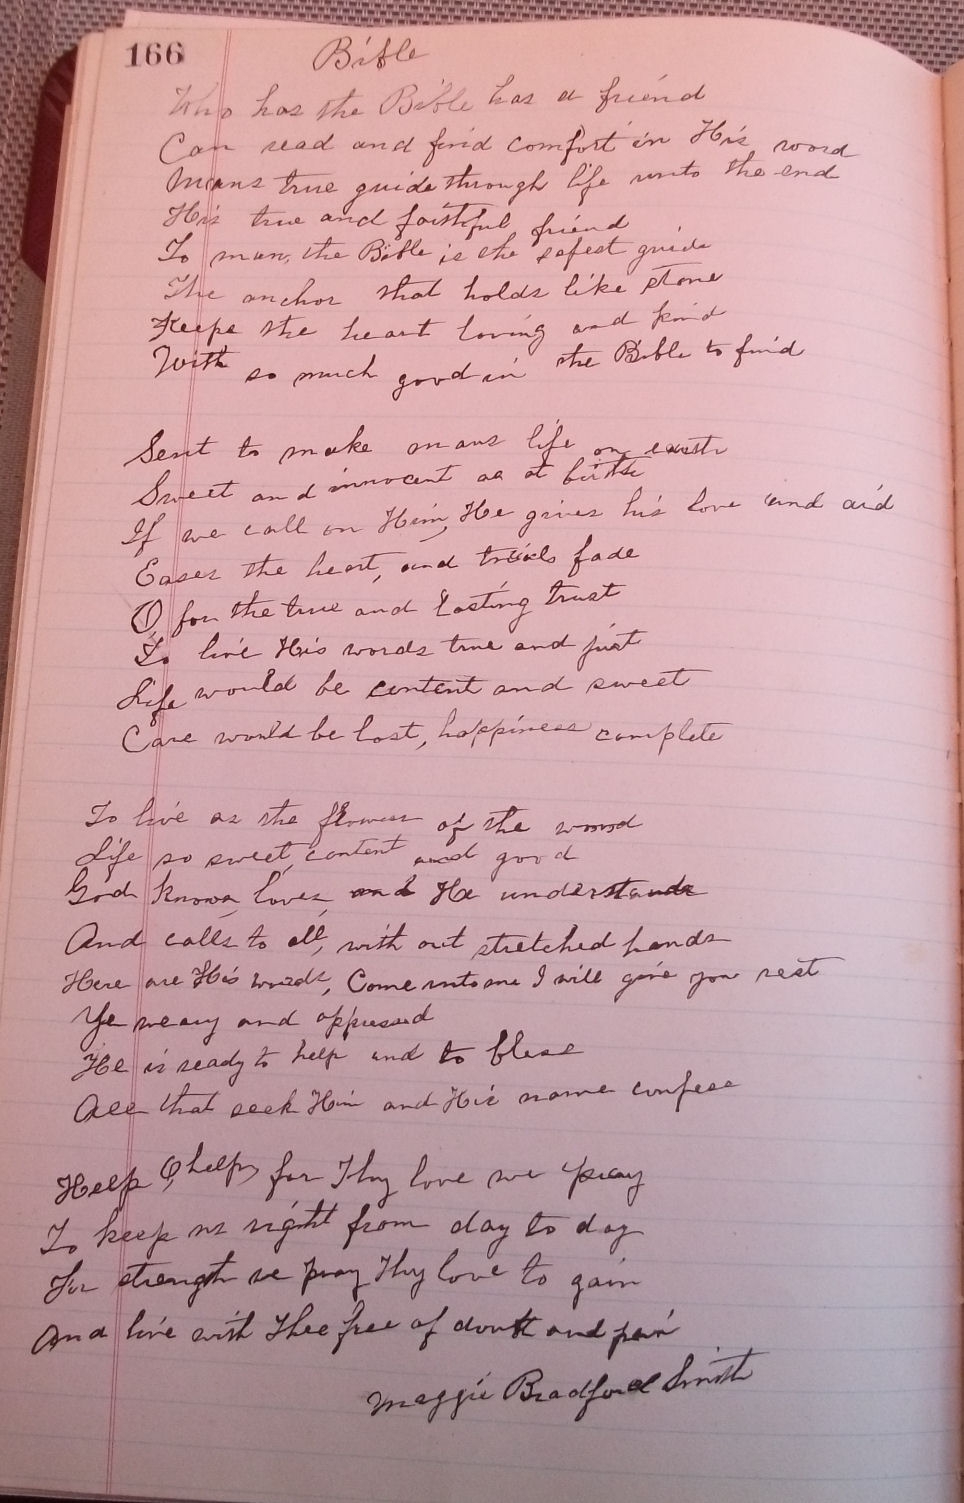 166
Bible
Who has the Bible has a friend
Can read and find comfort in His word
Mans true guide through life unto the end
His true and faithful friend
To man, the Bible is the safest guide
The anchor that holds like stone
Keeps the heart loving and kind
With so much good in the Bible to find
Sent to make mans life on earth
Sweet and innocent as at birth
If we call on Him, He gives his love and aid
Eases the heart, and trials fade
O for the true and lasting trust
To live His words true and just
Life would be content and sweet
Care would be lost, happiness complete
To live as the flowers of the wood
Life so sweet, content and good
God knows, loves, and He understands
And calls to all, with out stretched hands
Here are His words, Come unto me I will give you rest
Ye weary and oppressed
He is ready to help and to bless
All that seek Him and His name confess
Help O help, for Thy love we pray
To keep us right from day to day
For strength we pray Thy love to gain
And live with Thee free of doubt and pain
Maggie Bradford Smith